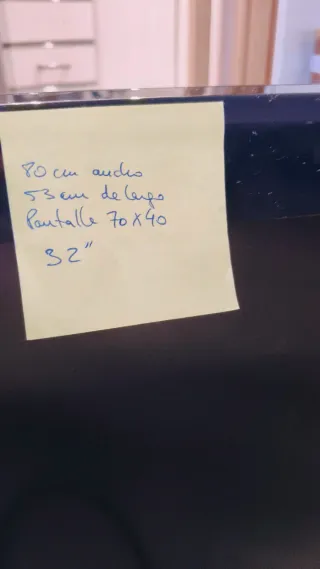 80 cm ancho
53 cm de largo
Pantalla 70 x 40
32"